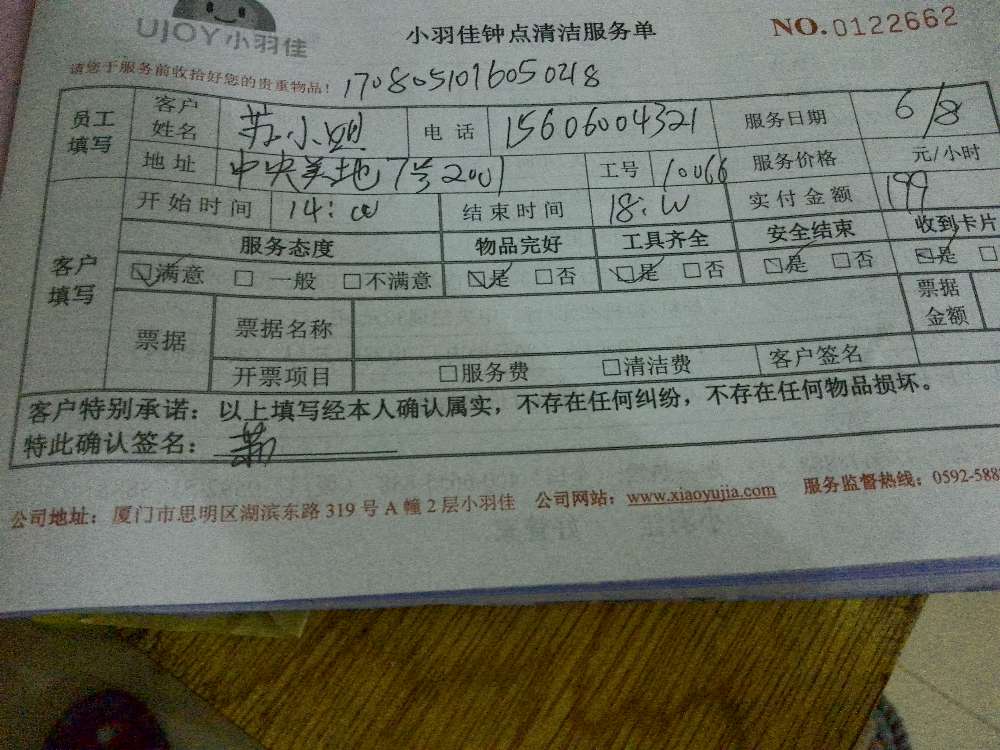 UJOY小羽佳
小羽佳钟点清洁服务单
NO.0122662
请您于服务前收拾好您的贵重物品! 1708051016050218
员工填写 客户姓名 苏小姐 电话 15606004321 服务日期 6/8
地址 中央美地7号2001 工号 10066 服务价格 元/小时
开始时间 14:00 结束时间 18:00 实付金额 199
客户填写 服务态度 物品完好 工具齐全 安全结束 收到卡片
☑满意 □一般 □不满意 ☑是 □否 ☑是 □否 ☑是 □否 ☑是 □
票据 票据名称 票据金额
开票项目 □服务费 □清洁费 客户签名
客户特别承诺:以上填写经本人确认属实,不存在任何纠纷,不存在任何物品损坏。
特此确认签名:
公司地址:厦门市思明区湖滨东路319号A幢2层小羽佳 公司网站:www.xiaoyujia.com 服务监督热线:0592-588